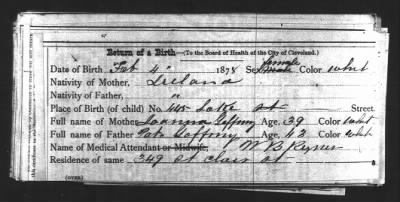 Return of a Birth—(To the Board of Health of the City of Cleveland.)
Date of Birth Feb 4" 1878 Sex female Color whit
Nativity of Mother, Ireland
Nativity of Father, "
Place of Birth (of child) No. 445 Lake st Street.
Full name of Mother Joanna Age, 39 Color whit
Full name of Father Pat Age, 43 Color whit
Name of Medical Attendant or Midwife, W B
Residence of same 349 St Clair st
(OVER)